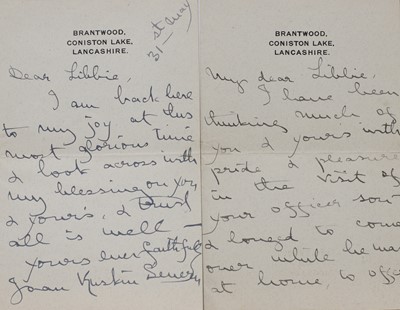 BRANTWOOD,
CONISTON LAKE,
LANCASHIRE.
31st May
Dear Libbie,
I am back here
to my joy at this
most glorious time
& look across with
my blessing on you
& yours, & trust
all is well —
yours ever faithfully
Joan Ruskin Severn
BRANTWOOD,
CONISTON LAKE,
LANCASHIRE.
My dear Libbie,
I have been
thinking much of
you & yours with
pride & pleasure
in the visit of
your officer son —
& longed to come
over while he was
at home, to offer